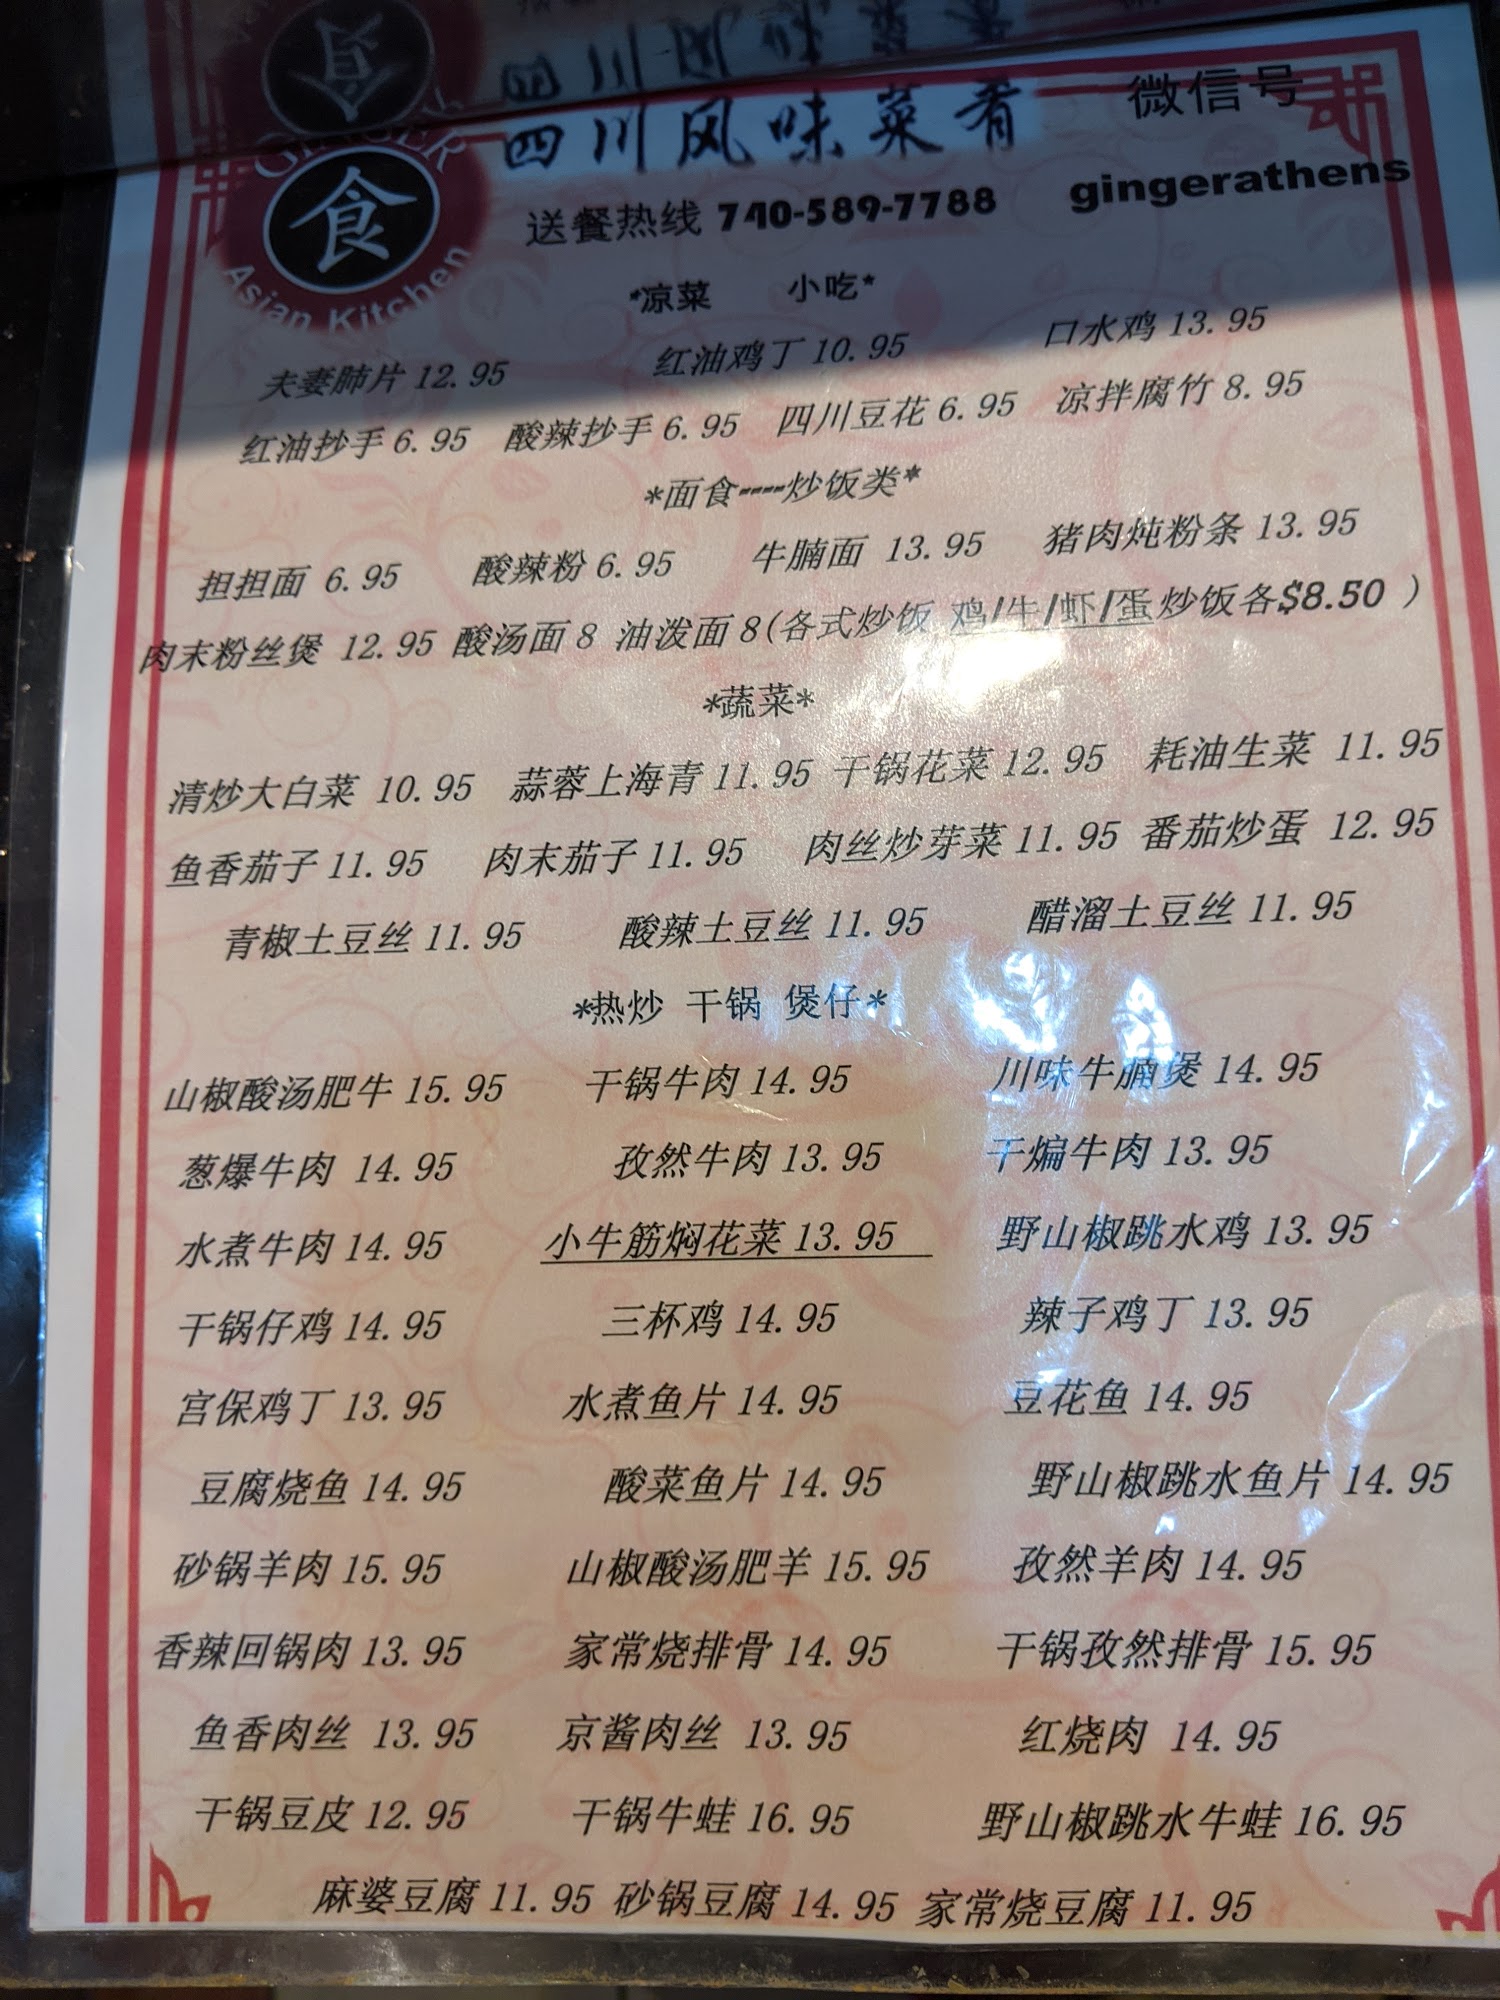 食
GINGER
Asian Kitchen
四川风味菜肴
微信号
送餐热线 740-589-7788 gingerathens
*凉菜 小吃*
夫妻肺片 12.95 红油鸡丁 10.95 口水鸡 13.95
红油抄手 6.95 酸辣抄手 6.95 四川豆花 6.95 凉拌腐竹 8.95
*面食----炒饭类*
担担面 6.95 酸辣粉 6.95 牛腩面 13.95 猪肉炖粉条 13.95
肉末粉丝煲 12.95 酸汤面 8 油泼面 8(各式炒饭 鸡/牛/虾/蛋炒饭各$8.50 )
*蔬菜*
清炒大白菜 10.95 蒜蓉上海青 11.95 干锅花菜 12.95 耗油生菜 11.95
鱼香茄子 11.95 肉末茄子 11.95 肉丝炒芽菜 11.95 番茄炒蛋 12.95
青椒土豆丝 11.95 酸辣土豆丝 11.95 醋溜土豆丝 11.95
*热炒 干锅 煲仔*
山椒酸汤肥牛 15.95 干锅牛肉 14.95 川味牛腩煲 14.95
葱爆牛肉 14.95 孜然牛肉 13.95 干煸牛肉 13.95
水煮牛肉 14.95 小牛筋焖花菜 13.95 野山椒跳水鸡 13.95
干锅仔鸡 14.95 三杯鸡 14.95 辣子鸡丁 13.95
宫保鸡丁 13.95 水煮鱼片 14.95 豆花鱼 14.95
豆腐烧鱼 14.95 酸菜鱼片 14.95 野山椒跳水鱼片 14.95
砂锅羊肉 15.95 山椒酸汤肥羊 15.95 孜然羊肉 14.95
香辣回锅肉 13.95 家常烧排骨 14.95 干锅孜然排骨 15.95
鱼香肉丝 13.95 京酱肉丝 13.95 红烧肉 14.95
干锅豆皮 12.95 干锅牛蛙 16.95 野山椒跳水牛蛙 16.95
麻婆豆腐 11.95 砂锅豆腐 14.95 家常烧豆腐 11.95